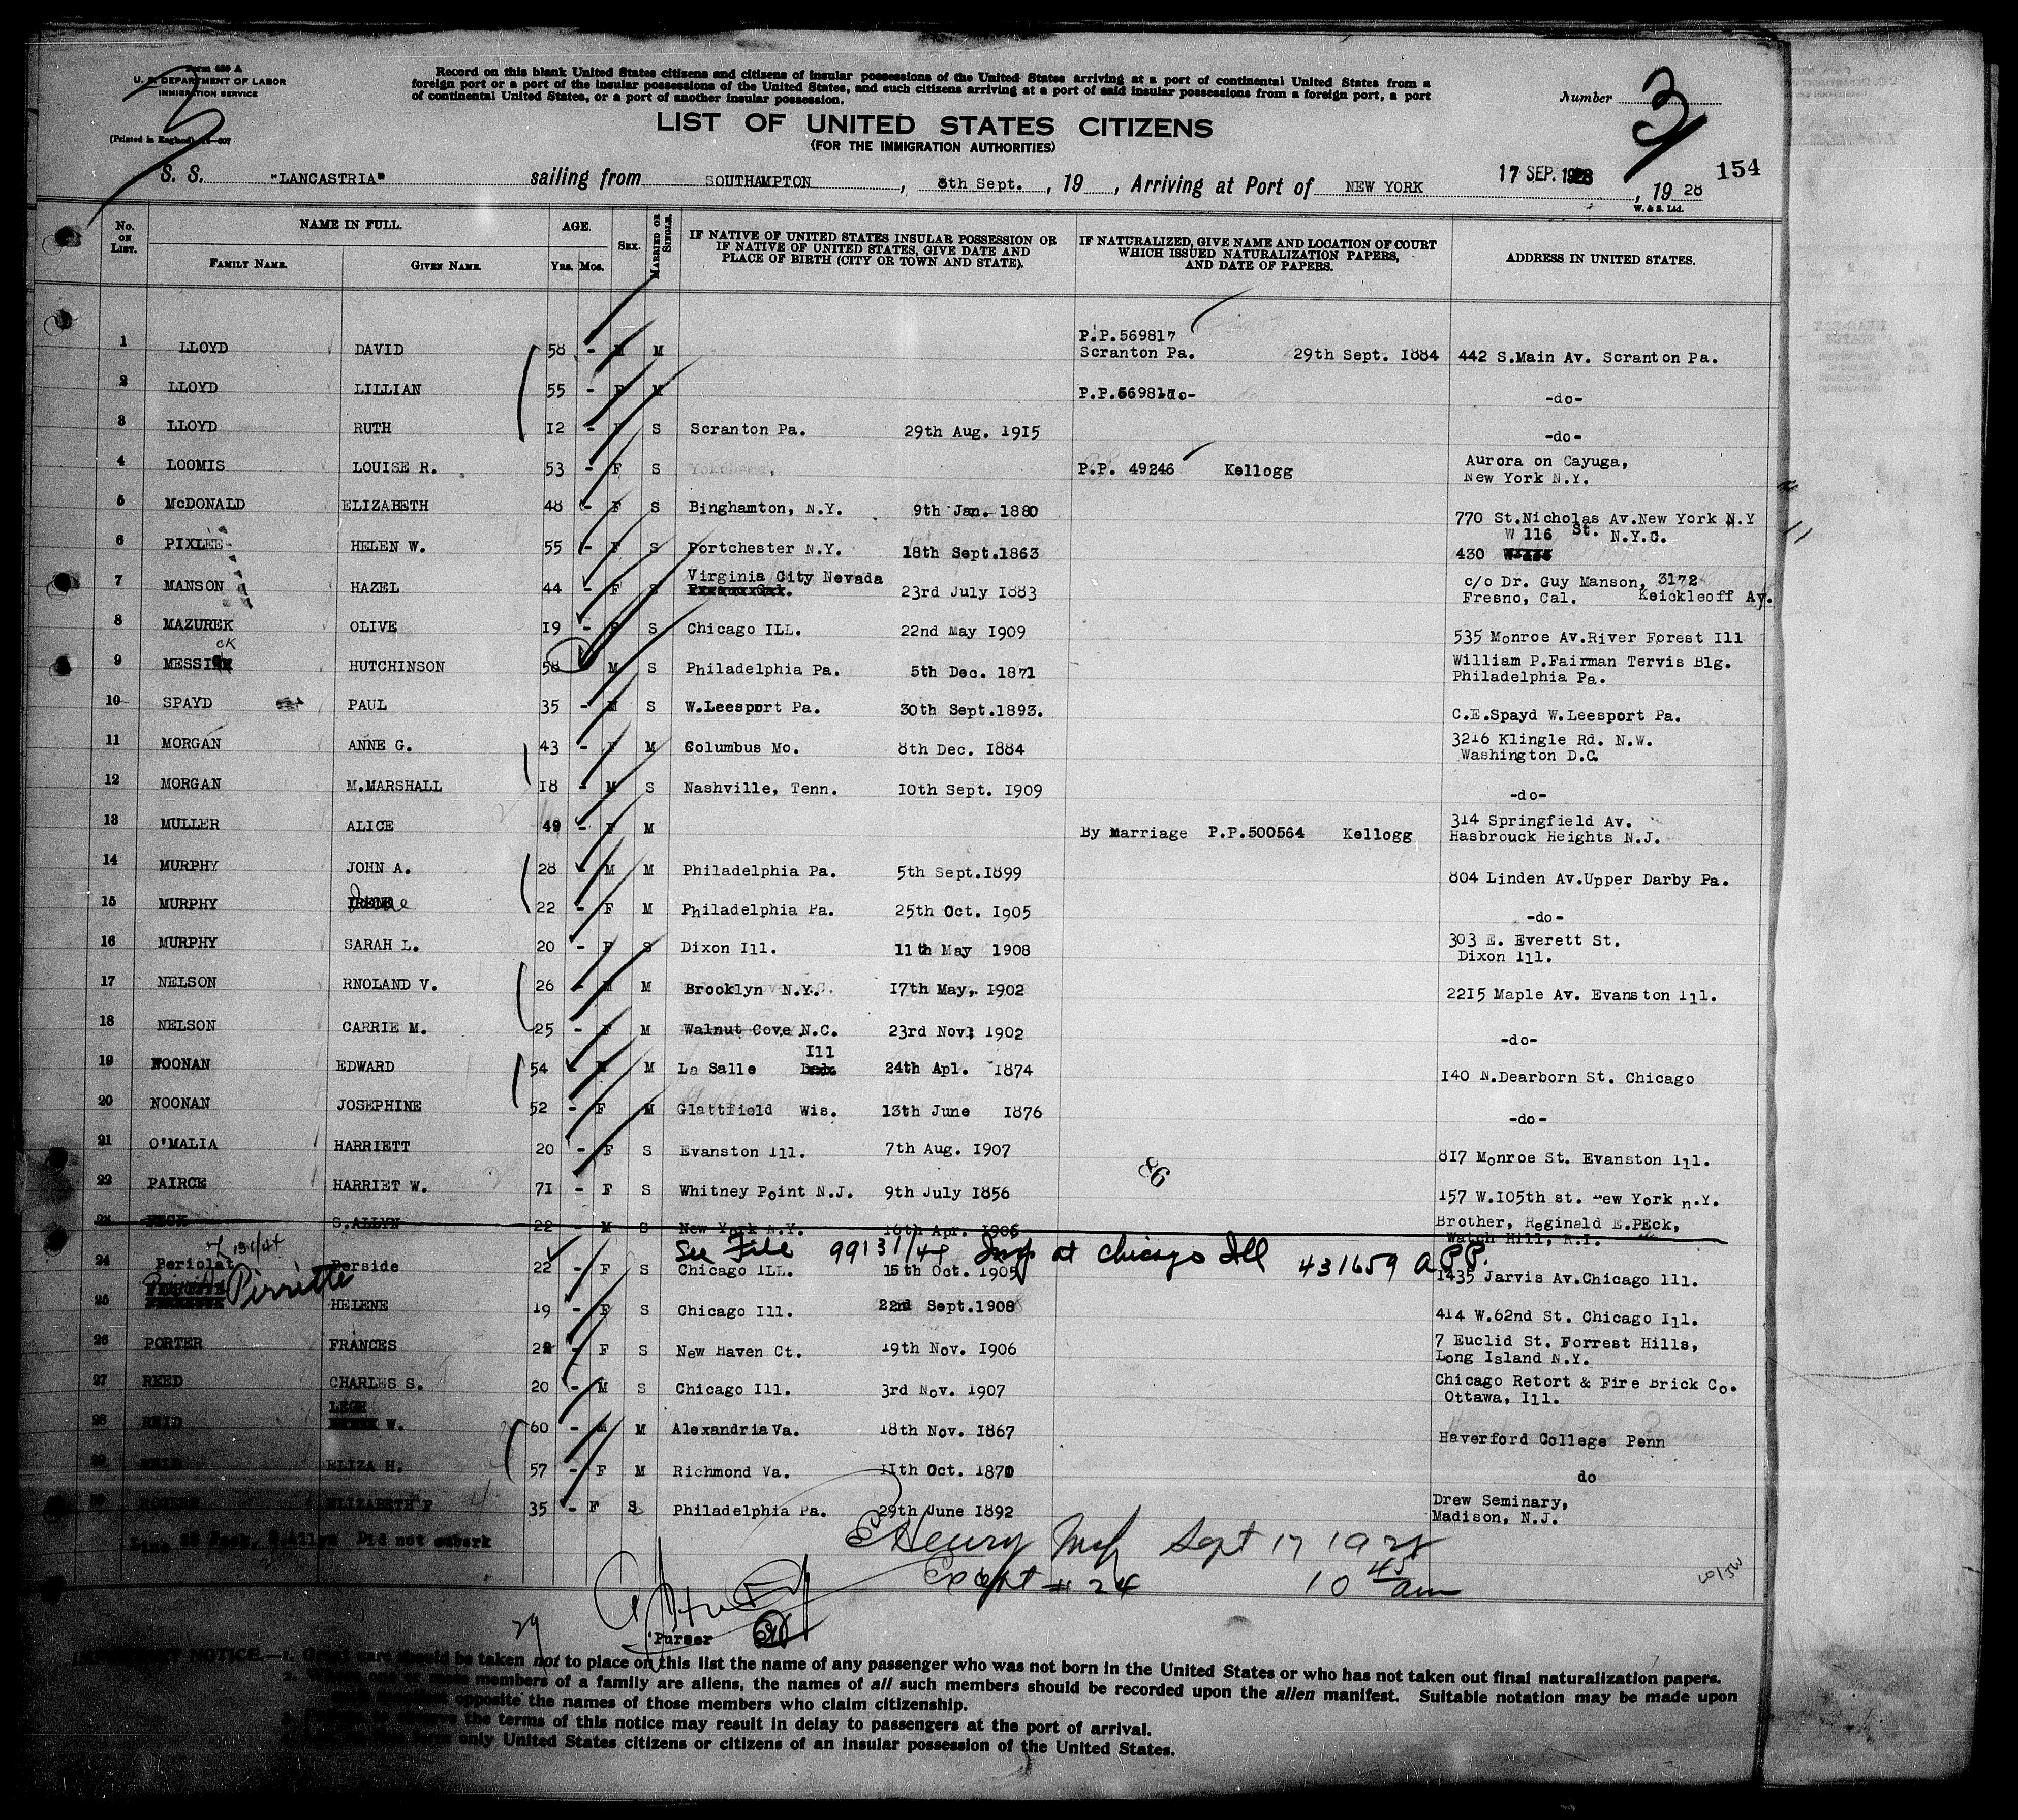 Form 489 A
U. S. DEPARTMENT OF LABOR
IMMIGRATION SERVICE
(Printed in England)
Record on this blank United States citizens and citizens of insular possessions of the United States arriving at a port of continental United States from a
foreign port or a port of the insular possessions of the United States, and such citizens arriving at a port of said insular possessions from a foreign port, a port
of continental United States, or a port of another insular possession.
Number 3
LIST OF UNITED STATES CITIZENS
(FOR THE IMMIGRATION AUTHORITIES)
154
S. S. "LANCASTRIA" sailing from SOUTHAMPTON, 8th Sept., 19 , Arriving at Port of NEW YORK 17 SEP. 1928, 19 28
W. & S. Ltd.
No. ON LIST. NAME IN FULL. FAMILY NAME. GIVEN NAME. AGE. YRS. MOS. SEX. MARRIED OR SINGLE. IF NATIVE OF UNITED STATES INSULAR POSSESSION OR IF NATIVE OF UNITED STATES, GIVE DATE AND PLACE OF BIRTH (CITY OR TOWN AND STATE). IF NATURALIZED, GIVE NAME AND LOCATION OF COURT WHICH ISSUED NATURALIZATION PAPERS, AND DATE OF PAPERS. ADDRESS IN UNITED STATES.
1 LLOYD DAVID 58 - M M P.P.569817 Scranton Pa. 29th Sept. 1884 442 S.Main Av. Scranton Pa.
2 LLOYD LILLIAN 55 - F M P.P.569817 -do- -do-
3 LLOYD RUTH 12 - F S Scranton Pa. 29th Aug. 1915 -do-
4 LOOMIS LOUISE R. 53 - F S Yokohama, P.P. 49246 Kellogg Aurora on Cayuga, New York N.Y.
5 McDONALD ELIZABETH 48 - F S Binghamton, N.Y. 9th Jan. 1880 770 St.Nicholas Av.New York N.Y
6 PIXLEE HELEN W. 55 - F S Portchester N.Y. 18th Sept.1863 430 W 116 St. N.Y.C.
7 MANSON HAZEL 44 - F S Virginia City Nevada 23rd July 1883 c/o Dr. Guy Manson, 3172 Keickleoff Av. Fresno, Cal.
8 MAZUREK OLIVE 19 - F S Chicago ILL. 22nd May 1909 535 Monroe Av.River Forest Ill
9 MESSICK HUTCHINSON 56 M S Philadelphia Pa. 5th Dec. 1871 William P.Fairman Tervis Blg. Philadelphia Pa.
10 SPAYD PAUL 35 - M S W.Leesport Pa. 30th Sept.1893. C.E.Spayd W.Leesport Pa.
11 MORGAN ANNE G. 43 - F M Columbus Mo. 8th Dec. 1884 3216 Klingle Rd. N.W. Washington D.C.
12 MORGAN M.MARSHALL 18 - M S Nashville, Tenn. 10th Sept. 1909 -do-
13 MULLER ALICE 49 - F M By Marriage P.P.500564 Kellogg 314 Springfield Av. Hasbrouck Heights N.J.
14 MURPHY JOHN A. 28 M M Philadelphia Pa. 5th Sept.1899 804 Linden Av.Upper Darby Pa.
15 MURPHY 22 - F M Philadelphia Pa. 25th Oct. 1905 -do-
16 MURPHY SARAH L. 20 - F S Dixon Ill. 11th May 1908 303 E. Everett St. Dixon Ill.
17 NELSON RNOLAND V. 26 - M M Brooklyn N.Y. 17th May, 1902 2215 Maple Av. Evanston Ill.
18 NELSON CARRIE M. 25 - F M Walnut Cove N.C. 23rd Nov. 1902 -do-
19 NOONAN EDWARD 54 M M La Salle Ill 24th Apl. 1874 140 N.Dearborn St. Chicago
20 NOONAN JOSEPHINE 52 - F M Glattfield Wis. 13th June 1876 -do-
21 O'MALIA HARRIETT 20 - F S Evanston Ill. 7th Aug. 1907 817 Monroe St. Evanston Ill.
22 PAIRCE HARRIET W. 71 - F S Whitney Point N.J. 9th July 1856 157 W.105th st. New York N.Y.
86
23 PECK S.ALLYN 22 - M S New York N.Y. 16th Apr. 1906 Brother, Reginald E.PEck, Watch Hill, R.I.
See File 99131/44 Insp at Chicago Ill 431659 a PP.
24 Periolat Perside 22 - F S Chicago ILL. 15th Oct. 1905 1435 Jarvis Av.Chicago Ill.
25 Pirritte HELENE 19 - F S Chicago Ill. 22nd Sept.1908 414 W.62nd St. Chicago Ill.
26 PORTER FRANCES 22 - F S New Haven Ct. 19th Nov. 1906 7 Euclid St. Forrest Hills, Long Island N.Y.
27 REED CHARLES S. 20 - M S Chicago Ill. 3rd Nov. 1907 Chicago Retort & Fire Brick Co. Ottawa, Ill.
28 REID LEGH W. 60 - M M Alexandria Va. 18th Nov. 1867 Haverford College Penn
29 REID ELIZA H. 57 - F M Richmond Va. 11th Oct. 1870 do
30 ROGERS ELIZABETH F 35 - F S Philadelphia Pa. 29th June 1892 Drew Seminary, Madison, N.J.
Line 23 Peck, S.Allyn Did not embark
Henry Insp Sept 17 1928
Except # 24 10 45 am
29
Purser
IMPORTANT NOTICE.—1. Great care should be taken not to place on this list the name of any passenger who was not born in the United States or who has not taken out final naturalization papers.
2. Where one or more members of a family are aliens, the names of all such members should be recorded upon the alien manifest. Suitable notation may be made upon
opposite the names of those members who claim citizenship.
3. the terms of this notice may result in delay to passengers at the port of arrival.
only United States citizens or citizens of an insular possession of the United States.